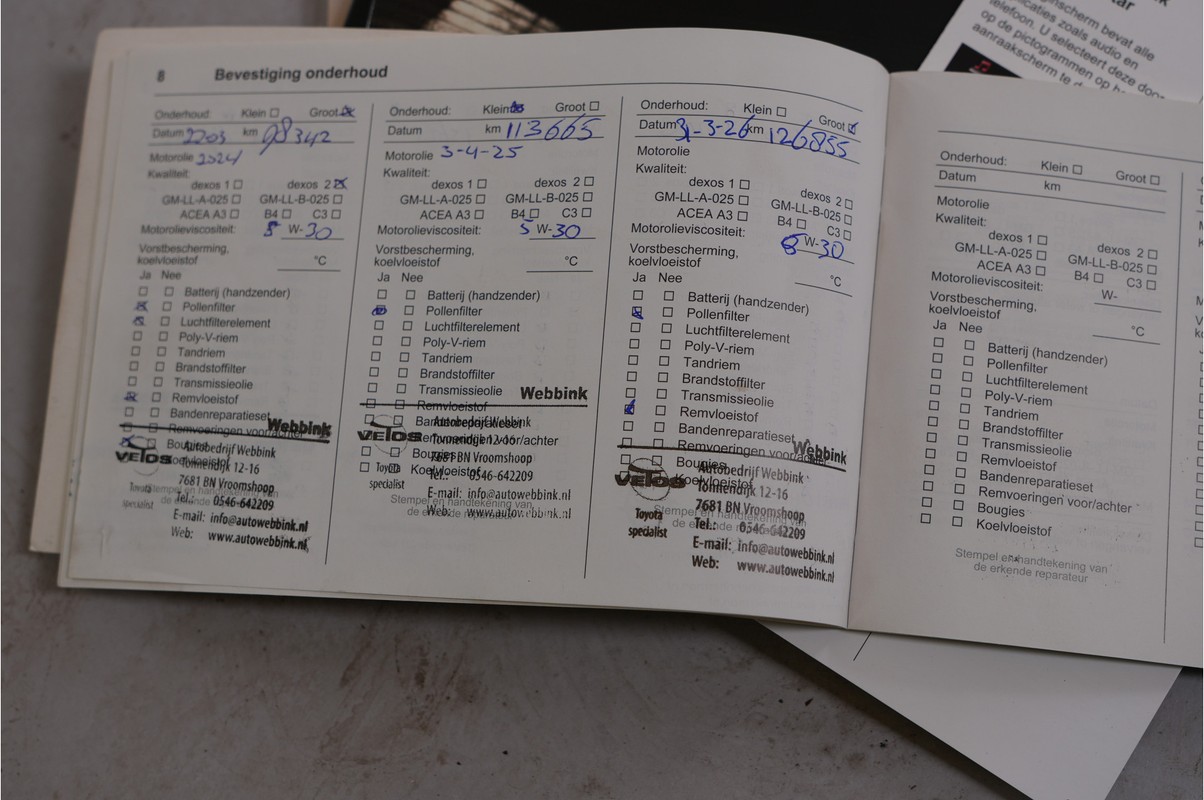 8 Bevestiging onderhoud
Onderhoud: Klein Groot
Datum 2203 km 98342
Motorolie 2024
Kwaliteit:
dexos 1 dexos 2
GM-LL-A-025 GM-LL-B-025
ACEA A3 B4 C3
Motorolieviscositeit: 5 W-30
Vorstbescherming,
koelvloeistof °C
Ja Nee
Batterij (handzender)
Pollenfilter
Luchtfilterelement
Poly-V-riem
Tandriem
Brandstoffilter
Transmissieolie
Remvloeistof
Bandenreparatieset
Remvoeringen voor/achter
Bougies
Koelvloeistof
Stempel en handtekening van
de erkende
Webbink
VETOS
Autobedrijf Webbink
Tonnendijk 12-16
7681 BN Vroomshoop
Toyota
specialist
Tel.: 0546-642209
E-mail: info@autowebbink.nl
Web: www.autowebbink.nl
Onderhoud: Klein Groot
Datum km 113665
Motorolie 3-4-25
Kwaliteit:
dexos 1 dexos 2
GM-LL-A-025 GM-LL-B-025
ACEA A3 B4 C3
Motorolieviscositeit: 5 W-30
Vorstbescherming,
koelvloeistof °C
Ja Nee
Batterij (handzender)
Pollenfilter
Luchtfilterelement
Poly-V-riem
Tandriem
Brandstoffilter
Transmissieolie
Remvloeistof
Bandenreparatieset
Remvoeringen voor/achter
Bougies
Koelvloeistof
Stempel en handtekening van
de erkende
Webbink
VETOS
Autobedrijf Webbink
Tonnendijk 12-16
7681 BN Vroomshoop
Toyota
specialist
Tel.: 0546-642209
E-mail: info@autowebbink.nl
Web: www.autowebbink.nl
Onderhoud: Klein Groot
Datum 31-3-26 km 126855
Motorolie
Kwaliteit:
dexos 1 dexos 2
GM-LL-A-025 GM-LL-B-025
ACEA A3 B4 C3
Motorolieviscositeit: 5 W-30
Vorstbescherming,
koelvloeistof °C
Ja Nee
Batterij (handzender)
Pollenfilter
Luchtfilterelement
Poly-V-riem
Tandriem
Brandstoffilter
Transmissieolie
Remvloeistof
Bandenreparatieset
Remvoeringen voor/achter
Bougies
Koelvloeistof
Stempel en handtekening van
de erkende
Webbink
VETOS
Autobedrijf Webbink
Tonnendijk 12-16
7681 BN Vroomshoop
Toyota
specialist
Tel.: 0546-642209
E-mail: info@autowebbink.nl
Web: www.autowebbink.nl
Onderhoud: Klein Groot
Datum km
Motorolie
Kwaliteit:
dexos 1 dexos 2
GM-LL-A-025 GM-LL-B-025
ACEA A3 B4 C3
Motorolieviscositeit: W-
Vorstbescherming,
koelvloeistof °C
Ja Nee
Batterij (handzender)
Pollenfilter
Luchtfilterelement
Poly-V-riem
Tandriem
Brandstoffilter
Transmissieolie
Remvloeistof
Bandenreparatieset
Remvoeringen voor/achter
Bougies
Koelvloeistof
Stempel en handtekening van
de erkende reparateur
bevat alle
zoals audio en
telefoon. U selecteert deze door
op de pictogrammen op
aanraakscherm te